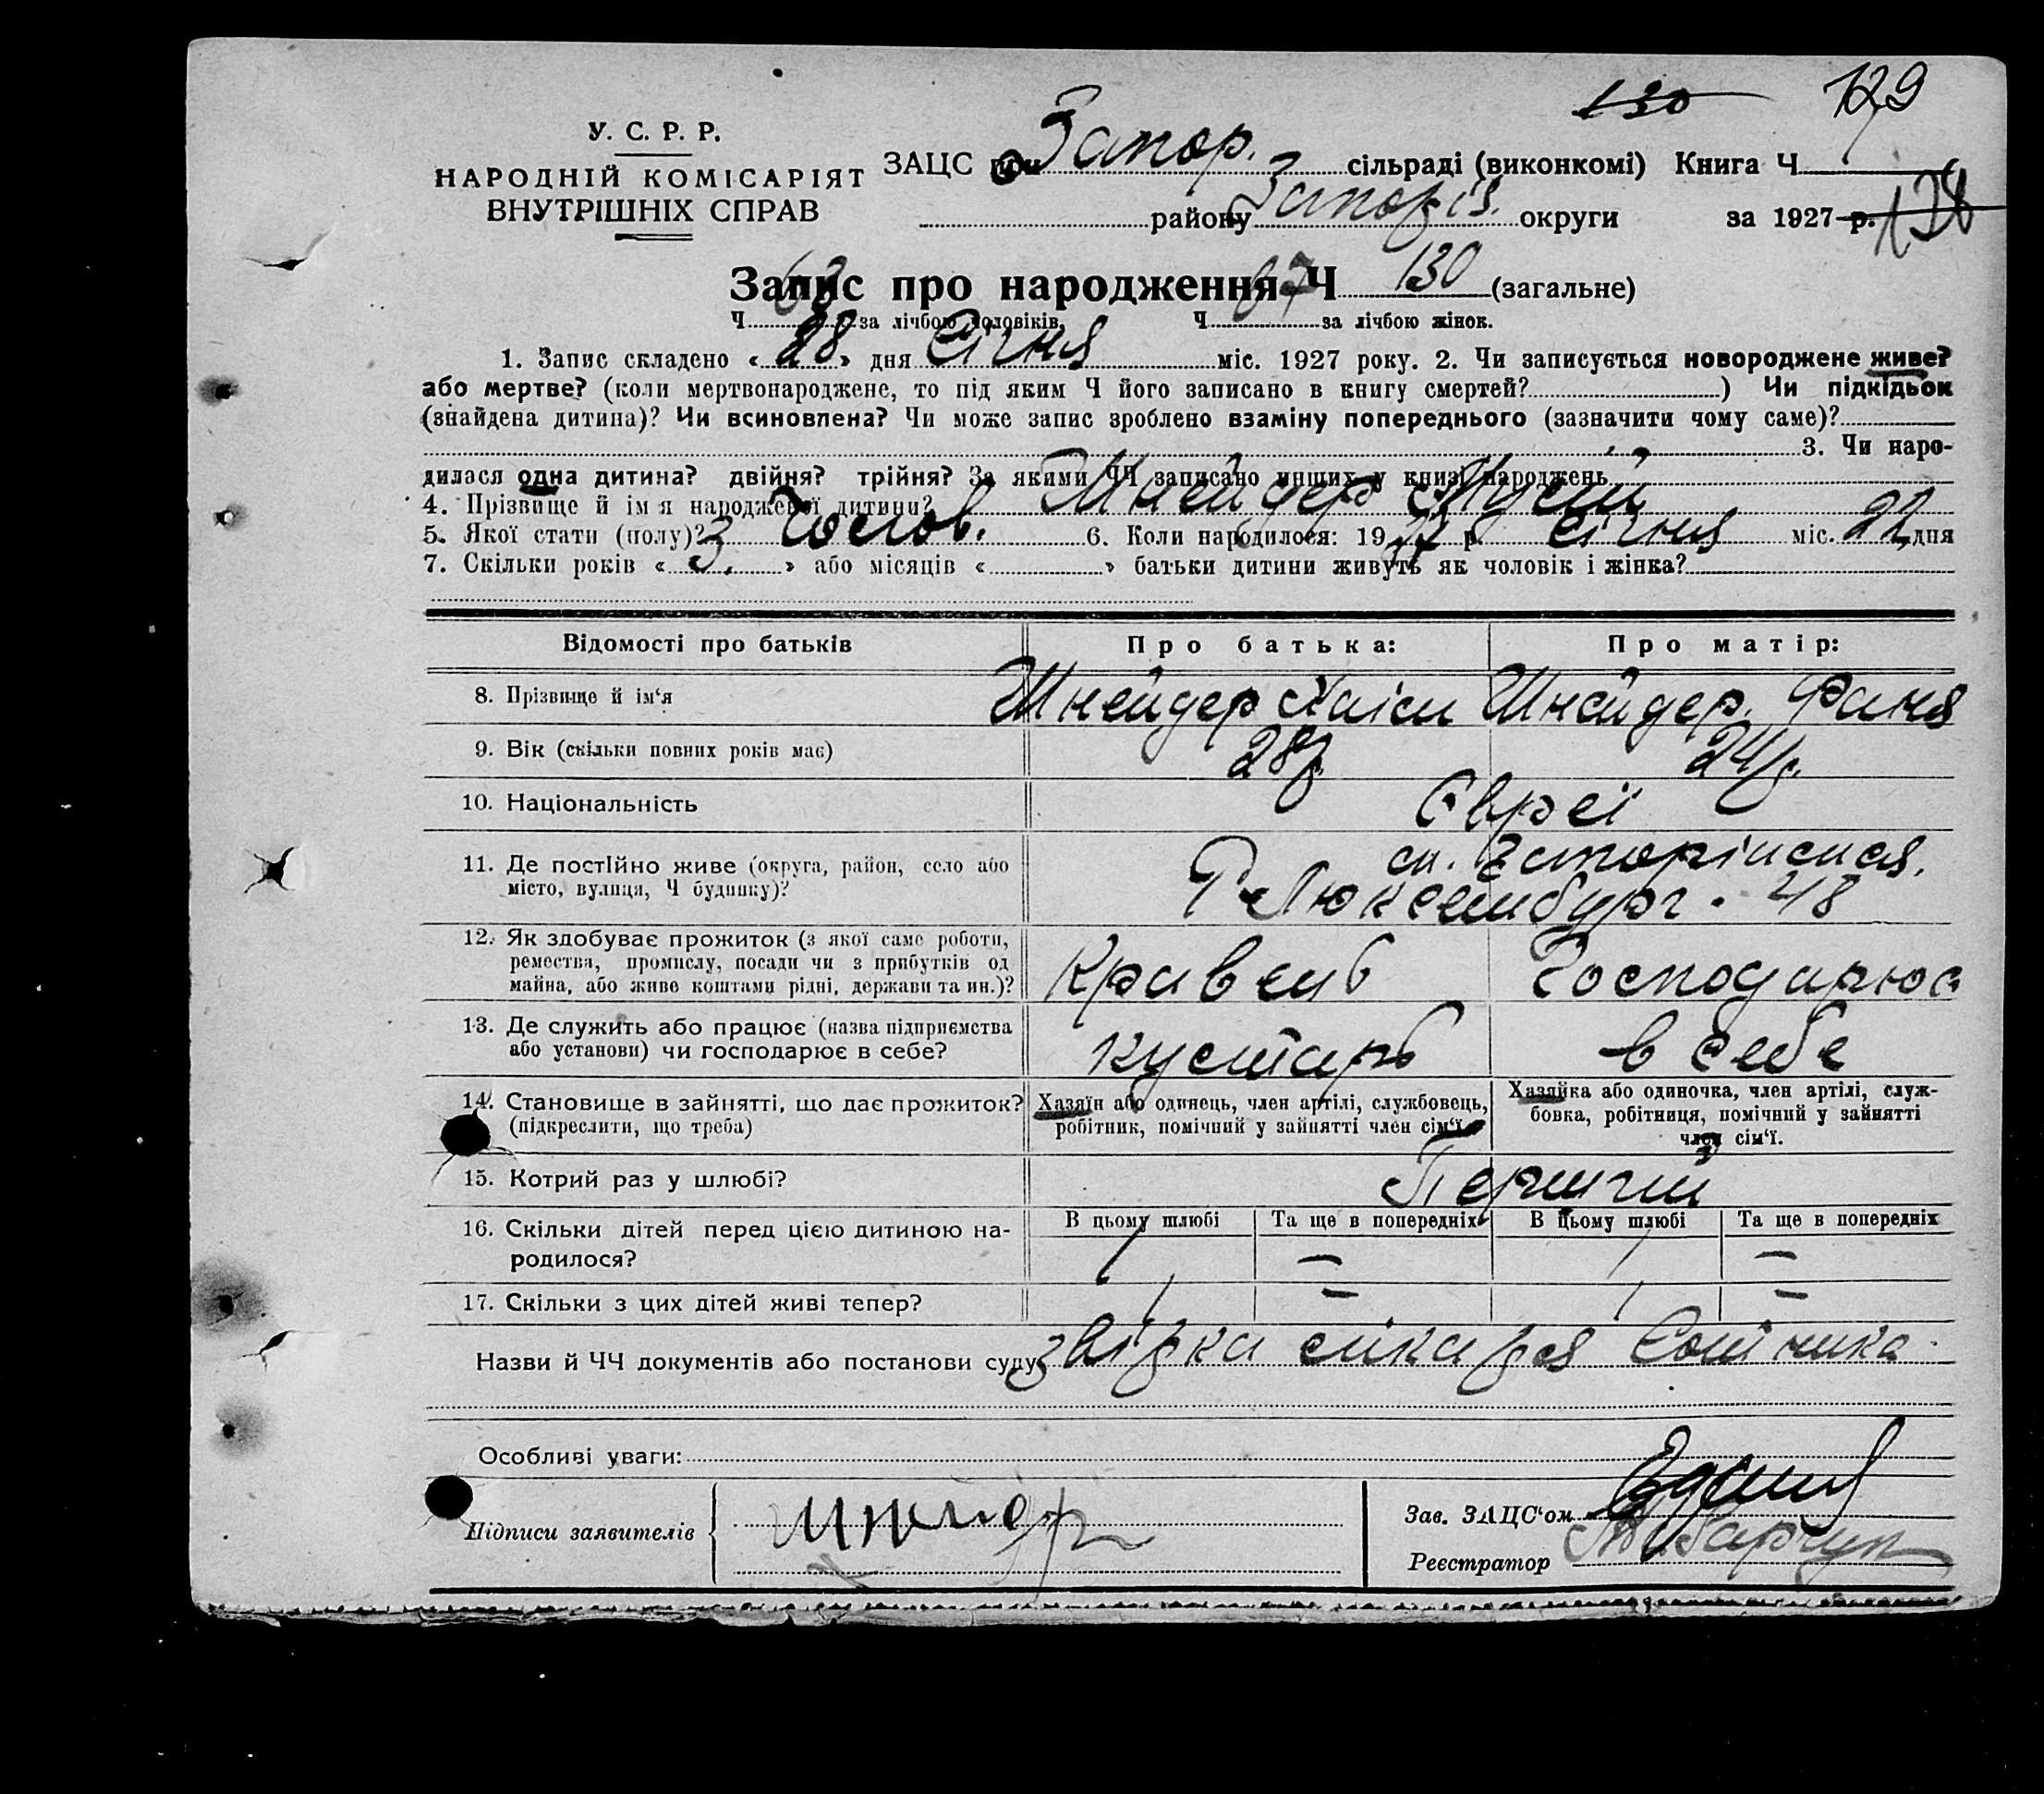 130 129
У. С. Р. Р.
НАРОДНІЙ КОМІСАРІЯТ
ВНУТРІШНІХ СПРАВ
ЗАЦС при Запор. сільраді (виконкомі) Книга Ч
району Запоріз. округи за 1927 р. 128
Запис про народження Ч 130 (загальне)
Ч 63 за лічбою чоловіків, Ч 67 за лічбою жінок.
1. Запис складено « 28 » дня Січня міс. 1927 року. 2. Чи записується новороджене живе?
або мертве? (коли мертвонароджене, то під яким Ч його записано в книгу смертей? ) Чи підкідьок
(знайдена дитина)? Чи всиновлена? Чи може запис зроблено взаміну попереднього (зазначити чому саме)?
3. Чи наро-
дилася одна дитина? двійня? трійня? За якими ЧЧ записано инших у книзі народжень
4. Прізвище й ім'я народженої дитини? Шнейдер Мусій
5. Якої стати (полу)? Чолов. 6. Коли народилося: 1927 р. Січня міс. 22 дня
7. Скільки років « 3. » або місяців « » батьки дитини живуть як чоловік і жінка?
Відомості про батьків Про батька: Про матір:
8. Прізвище й ім'я Шнейдер Хаім Шнейдер. Фаня
9. Вік (скільки повних років має) 28р. 24р.
10. Національність Євреї
11. Де постійно живе (округа, район, село або місто, вулиця, Ч будинку)?
Р. Люксембург. 48
12. Як здобуває прожиток (з якої саме роботи,
ремества, промислу, посади чи з прибутків од
майна, або живе коштами рідні, держави та ин.)?
Кравець Господарює
13. Де служить або працює (назва підприємства
або установи) чи господарює в себе?
кустарь в себе
14. Становище в зайнятті, що дає прожиток?
(підкреслити, що треба)
Хазяїн або одинець, член артілі, службовець,
робітник, помічний у зайнятті член сім'ї
Хазяйка або одиночка, член артілі, служ-
бовка, робітниця, помічний у зайнятті
член сім'ї.
15. Котрий раз у шлюбі? Перший
16. Скільки дітей перед цією дитиною на-
родилося?
В цьому шлюбі Та ще в попередніх В цьому шлюбі Та ще в попередніх
1 — 1 —
17. Скільки з цих дітей живі тепер? 1 — 1 —
Назви й ЧЧ документів або постанови суду
Особливі уваги:
Підписи заявителів Шнейдер
Зав. ЗАЦС'ом
Реєстратор